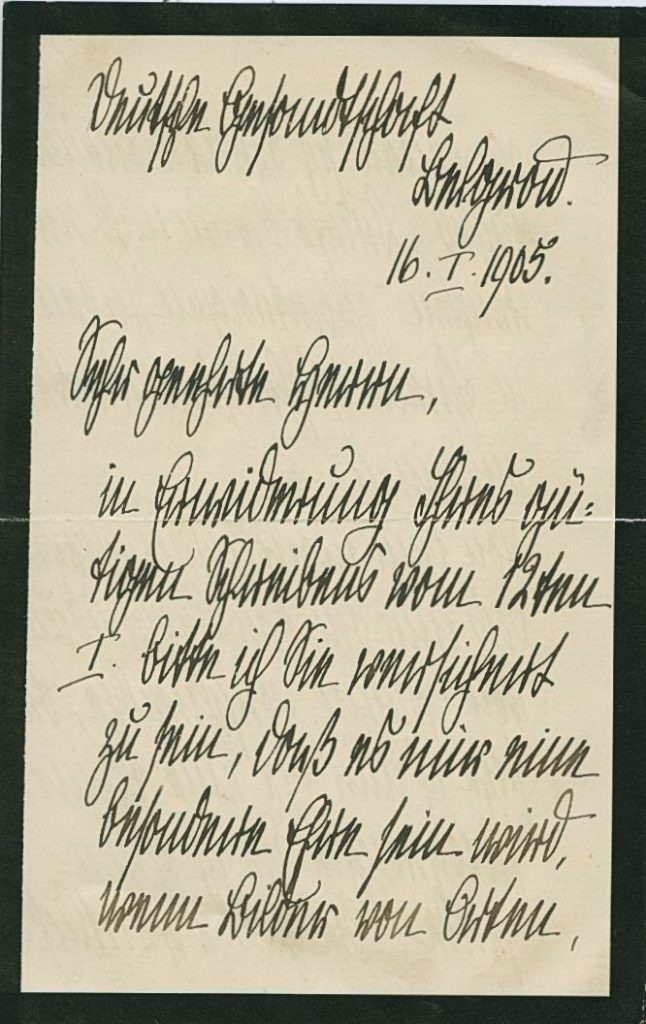 Deutsche Gesandtschaft
Belgrad.
16. I. 1905.
Sehr geehrte Herren,
in Erwiderung Ihres gü-
tigen Schreibens vom 12ten
I. bitte ich Sie versichert
zu sein, daß es mir eine
besondere Ehre sein wird,
wenn Bilder von Orten,